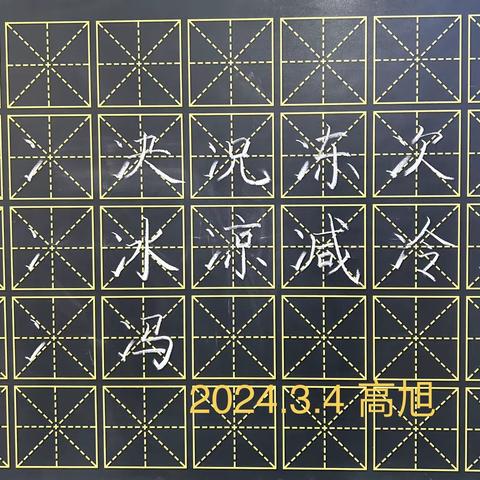 冫决况冻次
冫冰凉减冷
冫冯
2024.3.4 高旭